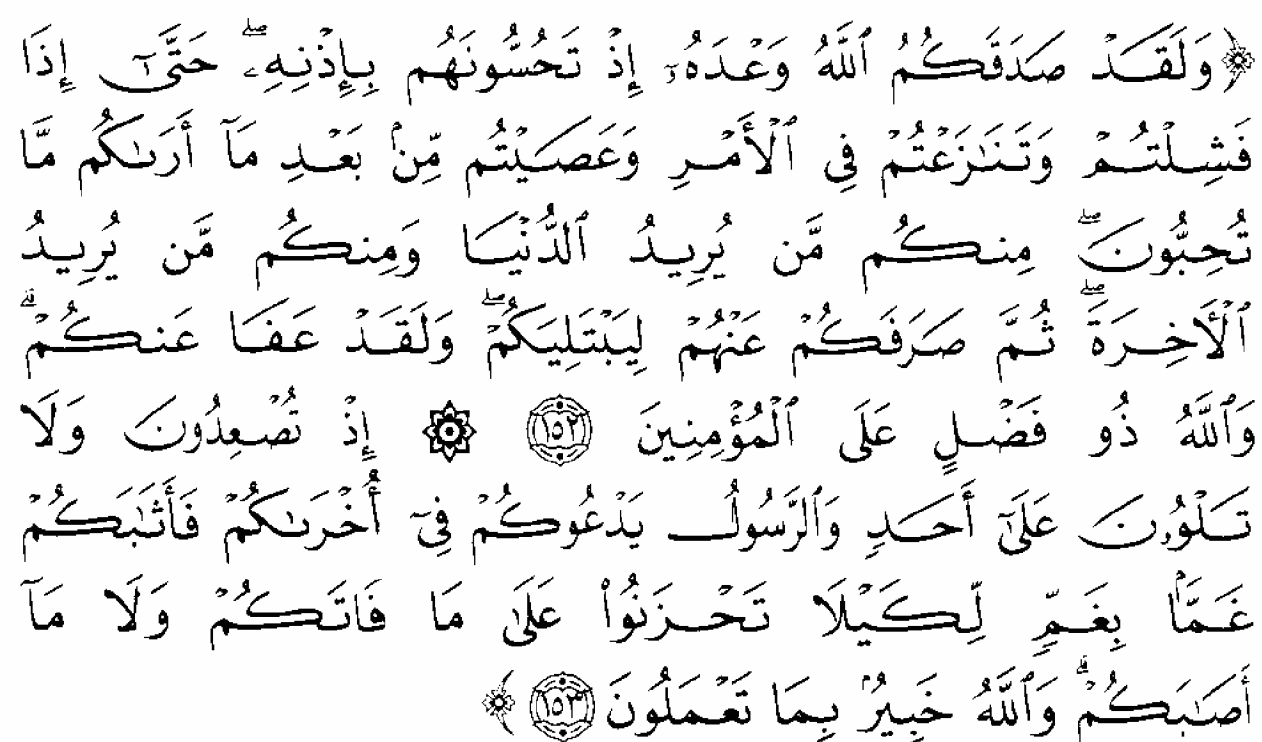 ﴿وَلَقَدْ صَدَقَكُمُ ٱللَّهُ وَعْدَهُۥٓ إِذْ تَحُسُّونَهُم بِإِذْنِهِۦۖ حَتَّىٰٓ إِذَا
فَشِلْتُمْ وَتَنَـٰزَعْتُمْ فِى ٱلْأَمْرِ وَعَصَيْتُم مِّنۢ بَعْدِ مَآ أَرَىٰكُم مَّا
تُحِبُّونَۖ مِنكُم مَّن يُرِيدُ ٱلدُّنْيَا وَمِنكُم مَّن يُرِيدُ
ٱلْـَٔاخِرَةَۖ ثُمَّ صَرَفَكُمْ عَنْهُمْ لِيَبْتَلِيَكُمْۖ وَلَقَدْ عَفَا عَنكُمْۗ
وَٱللَّهُ ذُو فَضْلٍ عَلَى ٱلْمُؤْمِنِينَ ١٥٢ ۞ إِذْ تُصْعِدُونَ وَلَا
تَلْوُۥنَ عَلَىٰٓ أَحَدٍ وَٱلرَّسُولُ يَدْعُوكُمْ فِىٓ أُخْرَىٰكُمْ فَأَثَـٰبَكُمْ
غَمًّۢا بِغَمٍّ لِّكَيْلَا تَحْزَنُوا۟ عَلَىٰ مَا فَاتَكُمْ وَلَا مَآ
أَصَـٰبَكُمْۗ وَٱللَّهُ خَبِيرٌۢ بِمَا تَعْمَلُونَ ١٥٣﴾